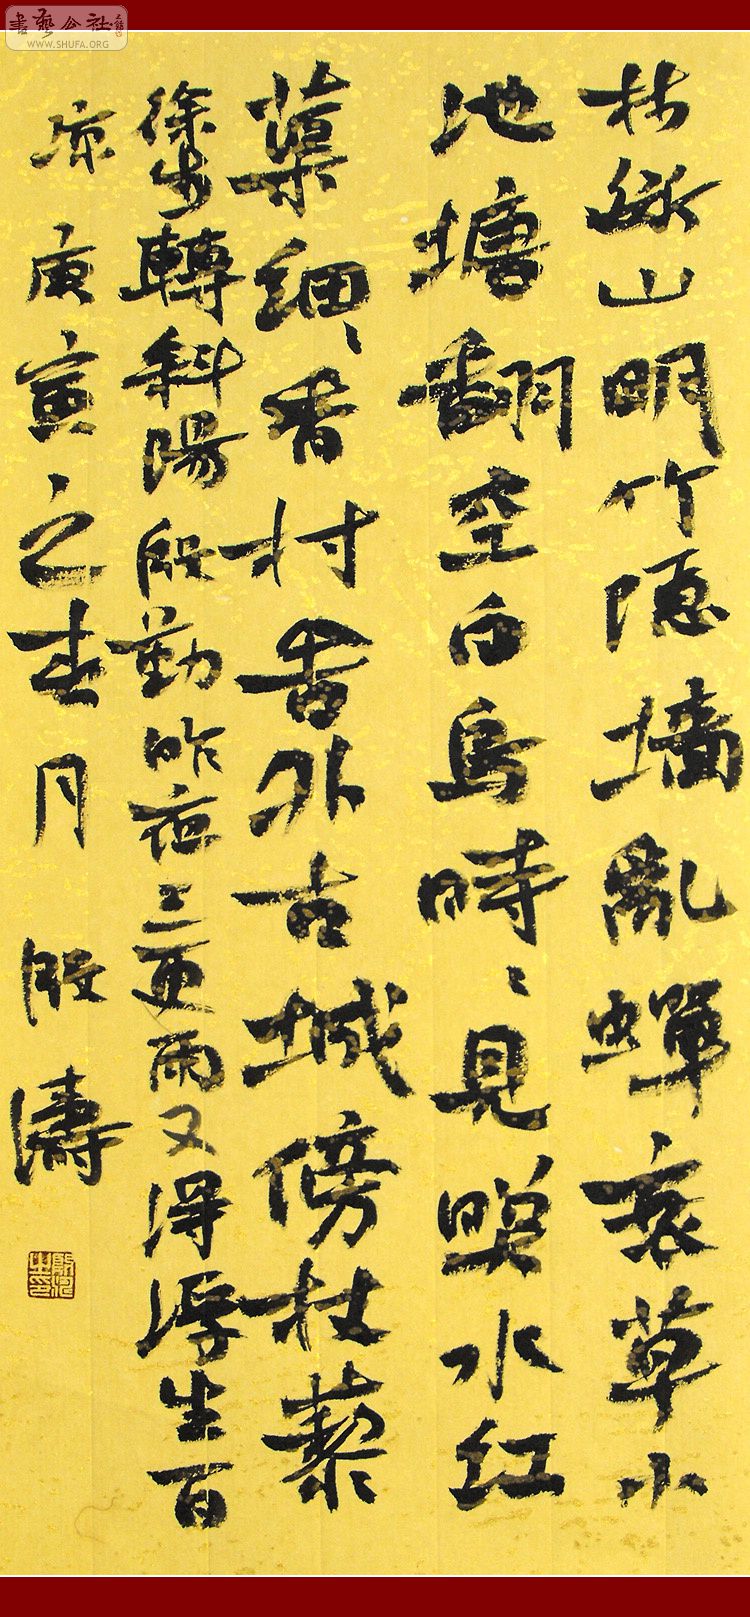 書藝公社
WWW.SHUFA.ORG
林斷山明竹隐墙亂蟬衰草小
池塘翻空白鳥時時見暎水红
蕖細細香村舍外古城傍杖藜
徐步轉斜陽殷勤昨夜三更雨又得浮生一日
凉庚寅之春月 殷濤